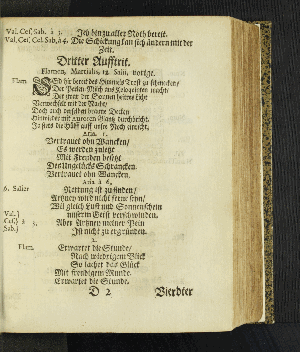 Val. Ces. Sab. à 3. Ich bin zu aller Noth bereit.
Val. Ces. Cel. Sab. à 4. Die Schickung kan sich ändern mit der
Zeit.
Dritter Aufftrit.
Flamen, Martialis, 12. Salii, vorige.
Flam.
Der Perlen-Milch aus
Der zwar der Sonnen heitres Licht
Verwechselt mit der Nacht/
Doch auch derselben braune Decken
Hinwieder mit Auroren Glantz durchbricht.
So stets die Hülff auff unsre Noth einricht.
Aria. 1.
Vertrauet ohn Wancken/
Es werden zuletzt
Mit Freuden besetzt
Des Unglücks Schrancken.
Vertrauet ohn Wancken.
Aria à 6.
6. Salier Rettung ist zu finden/
Artzney wird nicht ferne seyn/
Weil gleich Lufft und Sonnenschein
unserm Geist verschwinden.
Val.
Ces. à 3.
Sab.
Aber Artzney meiner Pein
Ist nicht zu ergründen.
2.
Flam. Erwartet die Stunde/
Nach wiedrigem Blick
So lachet das Glück
Mit freudigem Munde.
Erwartet die Stunde.
D 2 Vierdter